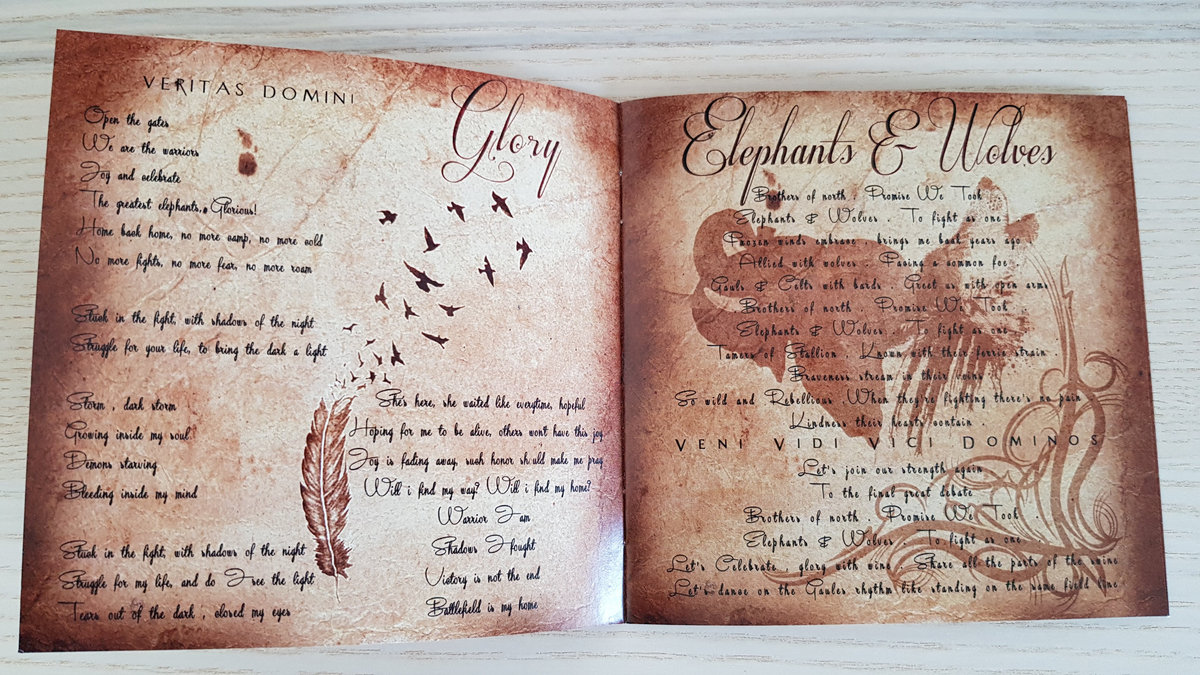 VERITAS DOMINI
Glory
Open the gates
We are the warriors
Joy and celebrate
The greatest elephants, Glorious!
Home back home, no more camp, no more cold
No more fights, no more fear, no more roam
Stuck in the fight, with shadows of the night
Struggle for your life, to bring the dark a light
Storm , dark storm
Growing inside my soul
Demons starving
Bleeding inside my mind
Stuck in the fight, with shadows of the night
Struggle for my life, and do I see the light
Tears out of the dark , closed my eyes
She's here, she waited like everytime, hopeful
Hoping for me to be alive, others wont have this joy
Joy is fading away, such honor should make me pray
Will i find my way? Will i find my home?
Warrior I am
Shadows I fought
Victory is not the end
Battlefield is my home
Elephants & Wolves
Brothers of north . Promise We Took
Elephants & Wolves . To fight as one
Frozen winds embrace , brings me back years ago
Allied with wolves . Facing a common foe .
Gauls & Celts with bards . Greet us with open arms
Brothers of north . Promise We Took .
Elephants & Wolves . To fight as one
Tamers of Stallion . Known with their ferric strain .
Braveness stream in their veins
So wild and Rebellious .When they're fighting there's no pain
Kindness their hearts contain .
VENI VIDI VICI DOMINOS
Let's join our strength again
To the final great debate
Brothers of north . Promise We Took .
Elephants & Wolves . To fight as one
Let's Celebrate , glory with wine . Share all the parts of the swine
Let's dance on the Gaules rhythm like standing on the same field line